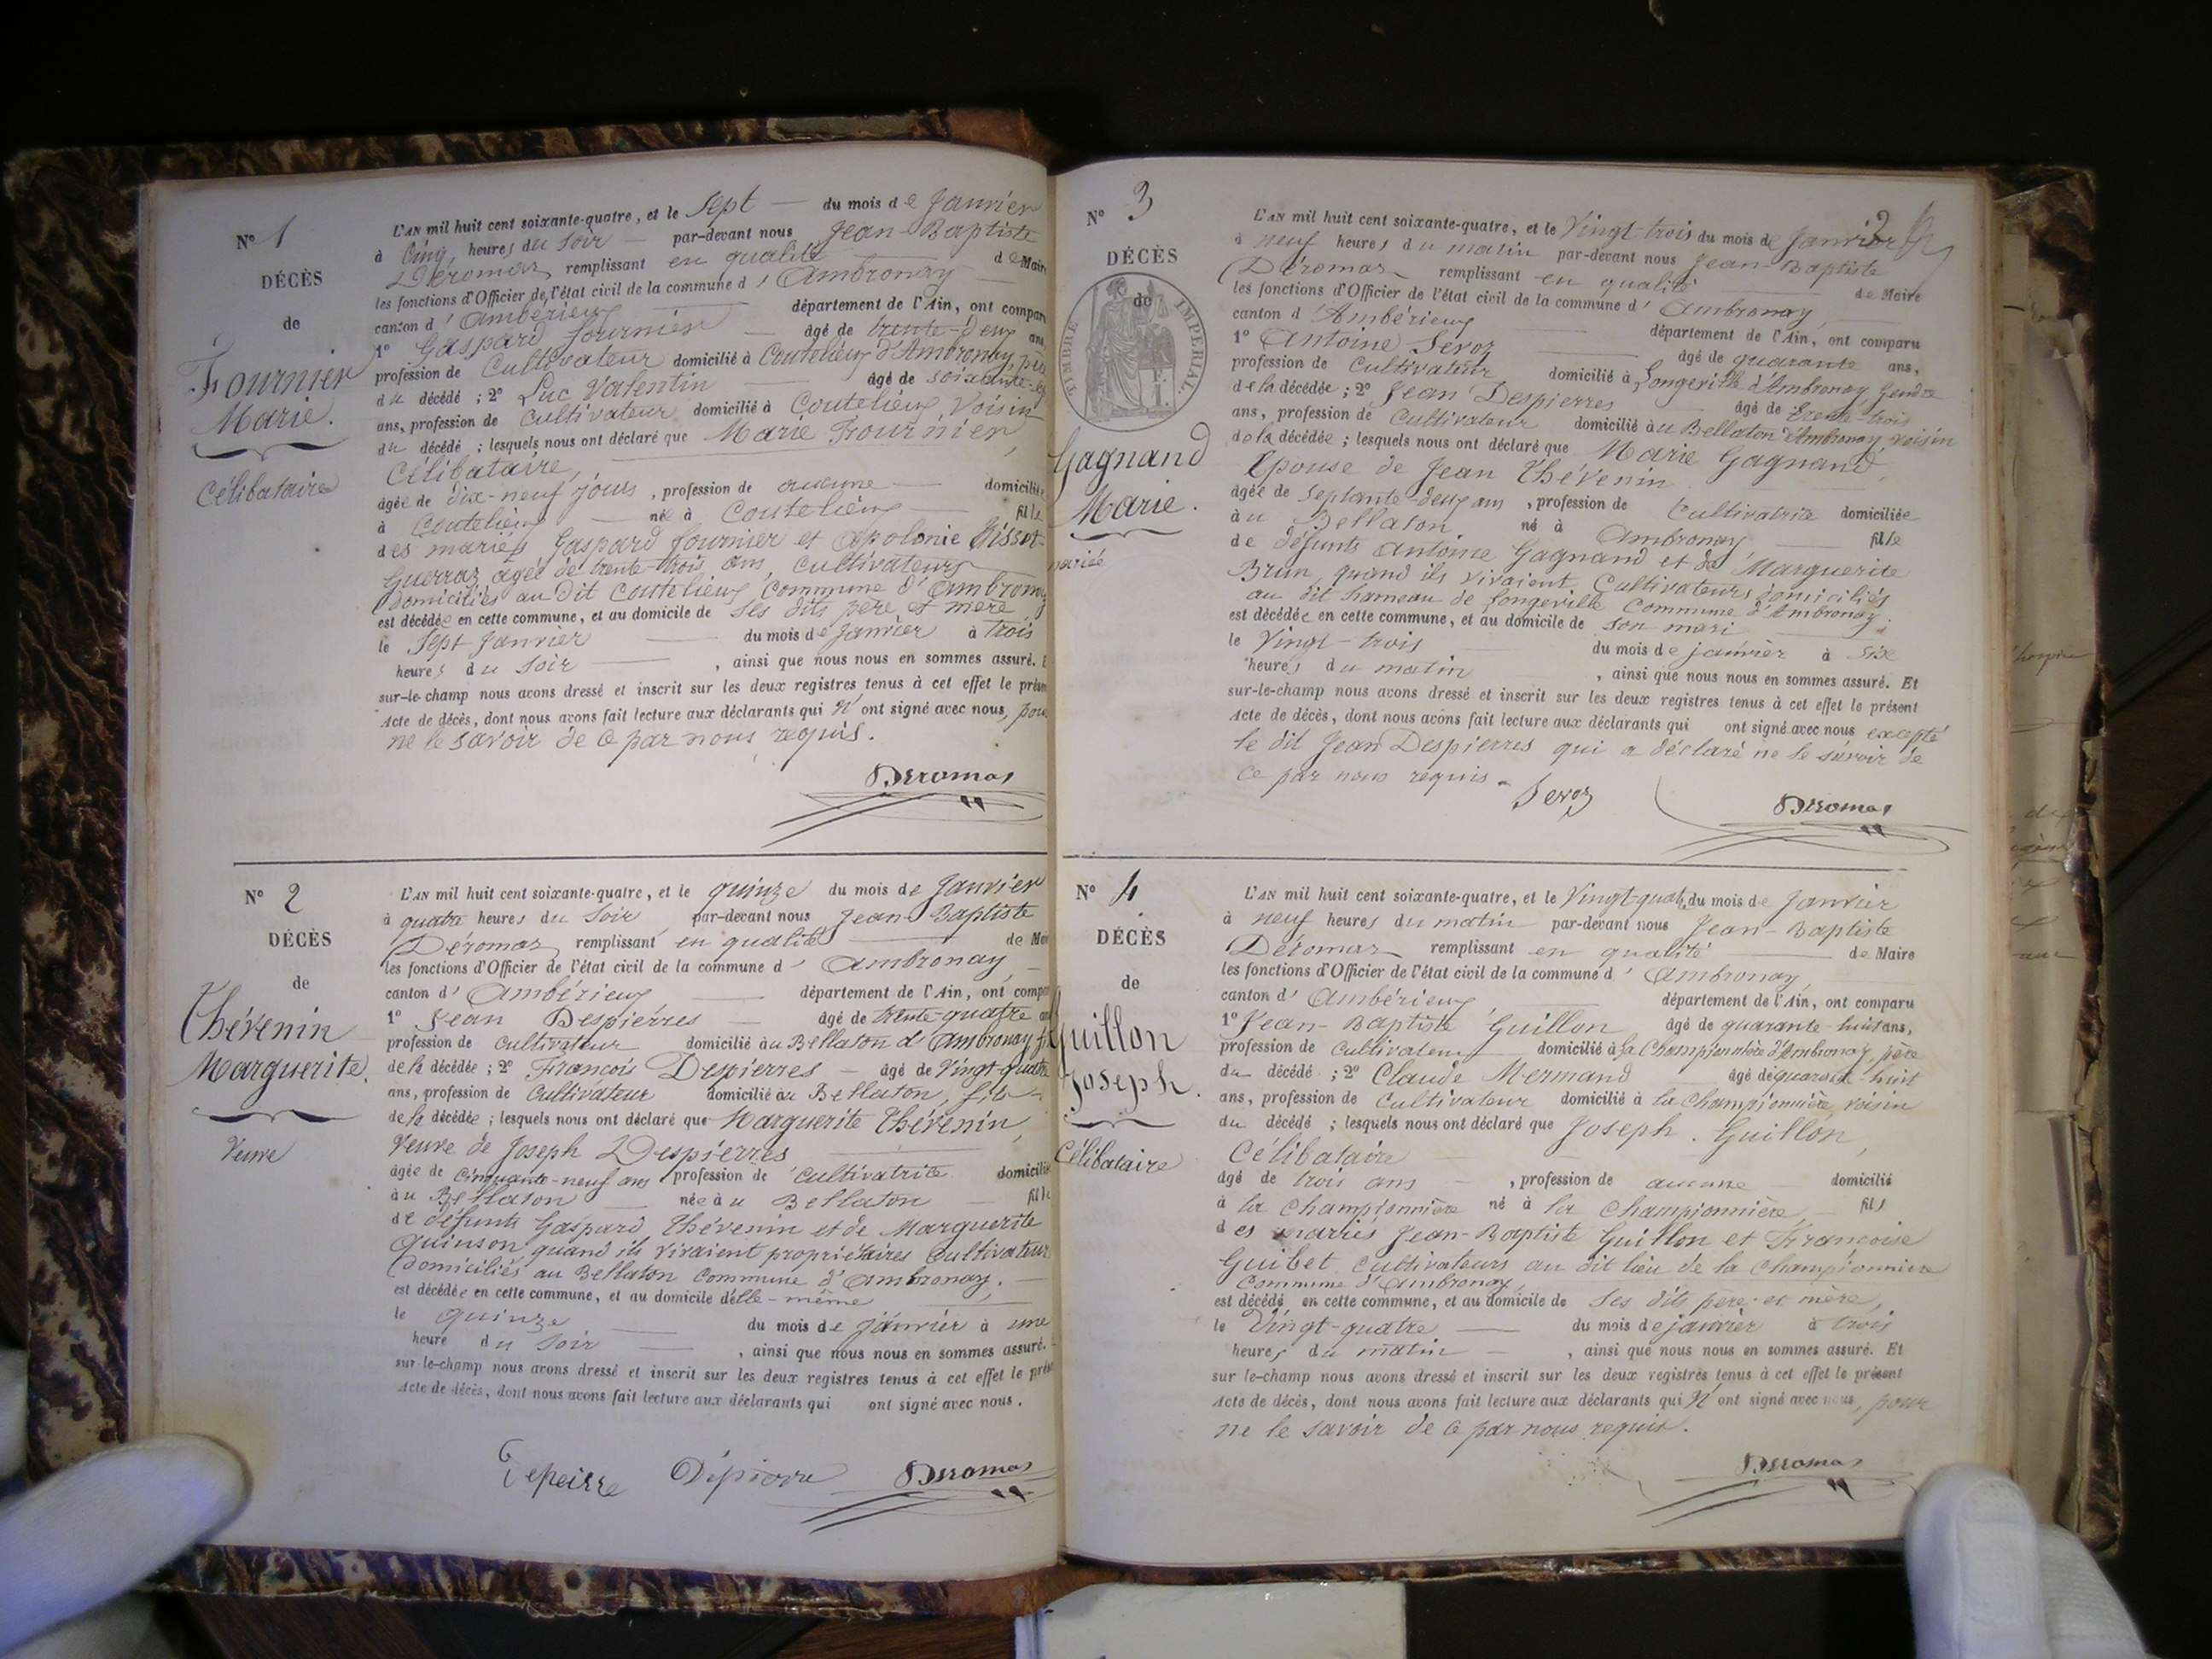 N° 1
DÉCÈS
de
Fournier
Marie.
Célibataire
L'AN mil huit cent soixante-quatre, et le Sept du mois de Janvier
à Cinq heures du Soir par-devant nous Jean-Baptiste
Déromas remplissant en qualité de Maire
les fonctions d'Officier de l'état civil de la commune d'Ambronay
canton d'Ambérieux département de l'Ain, ont comparu
1° Gaspard Fournier âgé de trente-deux ans,
profession de Cultivateur domicilié à Coutelieux d'Ambronay, père
du décédé ; 2° Luc Valentin âgé de soixante-
ans, profession de Cultivateur domicilié à Coutelieux, Voisin
du décédé ; lesquels nous ont déclaré que Marie Fournier,
Célibataire,
âgée de dix-neuf jours, profession de aucune domiciliée
à Coutelieux née à Coutelieux fille
des mariés Gaspard Fournier et Apolonie
Guerraz âgée de trente-trois ans, cultivateurs
domiciliés au dit Coutelieux Commune d'Ambronay
est décédée en cette commune, et au domicile de Ses dits père et mère
le Sept Janvier du mois de Janvier à trois
heures du Soir, ainsi que nous nous en sommes assuré. E
sur-le-champ nous avons dressé et inscrit sur les deux registres tenus à cet effet le présen
Acte de décès, dont nous avons fait lecture aux déclarants qui n'ont signé avec nous, pour
ne le savoir de ce par nous requis.
Déromas
N° 2
DÉCÈS
de
Thévenin
Marguerite.
Veuve
L'AN mil huit cent soixante-quatre, et le quinze du mois de Janvier
à quatre heures du Soir par-devant nous Jean-Baptiste
Déromas remplissant en qualité de Mai
les fonctions d'Officier de l'état civil de la commune d'Ambronay,
canton d'Ambérieux département de l'Ain, ont compa
1° Jean Despierres âgé de trente-quatre ans
profession de Cultivateur domicilié au Bellaton d'Ambronay fi
de la décédée ; 2° François Despierres âgé de Vingt-quatre
ans, profession de Cultivateur domicilié au Bellaton, fils
de la décédée ; lesquels nous ont déclaré que Marguerite Thévenin,
Veuve de Joseph Despierres
âgée de Cinquante-neuf ans profession de Cultivatrice domicilié
au Bellaton née au Bellaton fille
de défunts Gaspard Thévenin et de Marguerite
Quinson, quand ils vivaient propriétaires Cultivateurs
domiciliés au Bellaton Commune d'Ambronay.
est décédée en cette commune, et au domicile d'elle-même
le quinze du mois de janvier à une
heure du Soir, ainsi que nous nous en sommes assuré.
sur-le-champ nous avons dressé et inscrit sur les deux registres tenus à cet effet le prése
Acte de décès, dont nous avons fait lecture aux déclarants qui ont signé avec nous.
Depeirre Dépierre Déromas
N° 3
DÉCÈS
de
TIMBRE IMPERIAL.
1 F.
Gagnand
Marie.
mariée
L'AN mil huit cent soixante-quatre, et le Vingt-trois du mois de Janvier
à neuf heures du matin par-devant nous Jean-Baptiste
Déromas remplissant en qualité de Maire
les fonctions d'Officier de l'état civil de la commune d'Ambronay,
canton d'Ambérieux département de l'Ain, ont comparu
1° Antoine Sevoz âgé de quarante ans,
profession de Cultivateur domicilié à Longeville d'Ambronay, Gendre
de la décédée ; 2° Jean Despierres âgé de trente-trois
ans, profession de Cultivateur domicilié au Bellaton d'Ambronay, voisin
de la décédée ; lesquels nous ont déclaré que Marie Gagnand,
Epouse de Jean Thévenin
âgée de Septante-deux ans, profession de Cultivatrice domiciliée
au Bellaton né à Ambronay, fille
de défunts Antoine Gagnand et de Marguerite
Brun, quand ils vivaient, Cultivateurs domiciliés
au dit hameau de Longeville Commune d'Ambronay.
est décédée en cette commune, et au domicile de son mari
le Vingt-trois du mois de janvier à six
heures du matin, ainsi que nous nous en sommes assuré. Et
sur-le-champ nous avons dressé et inscrit sur les deux registres tenus à cet effet le présent
Acte de décès, dont nous avons fait lecture aux déclarants qui ont signé avec nous excepté
le dit Jean Despierres qui a déclaré ne le savoir de
ce par nous requis.
Sevoz Déromas
N° 4
DÉCÈS
de
Guillon
Joseph.
Célibataire
L'AN mil huit cent soixante-quatre, et le Vingt-quatre du mois de Janvier
à neuf heures du matin par-devant nous Jean-Baptiste
Déromas remplissant en qualité de Maire
les fonctions d'Officier de l'état civil de la commune d'Ambronay,
canton d'Ambérieux département de l'Ain, ont comparu
1° Jean-Baptiste Guillon âgé de quarante-huit ans,
profession de Cultivateur domicilié à la Championnière d'Ambronay, père
du décédé ; 2° Claude Mermand âgé de quarante-huit
ans, profession de Cultivateur domicilié à la Championnière, voisin
du décédé ; lesquels nous ont déclaré que Joseph Guillon,
Célibataire
âgé de trois ans, profession de aucune domicilié
à la Championnière né à la Championnière, fils
des mariés Jean-Baptiste Guillon et Françoise
Guibet cultivateurs au dit lieu de la Championnière
Commune d'Ambronay,
est décédé en cette commune, et au domicile de Ses dits père et mère,
le Vingt-quatre du mois de janvier à trois
heures du matin, ainsi que nous nous en sommes assuré. Et
sur-le-champ nous avons dressé et inscrit sur les deux registres tenus à cet effet le présent
Acte de décès, dont nous avons fait lecture aux déclarants qui n'ont signé avec nous, pour
ne le savoir de ce par nous requis.
Déromas